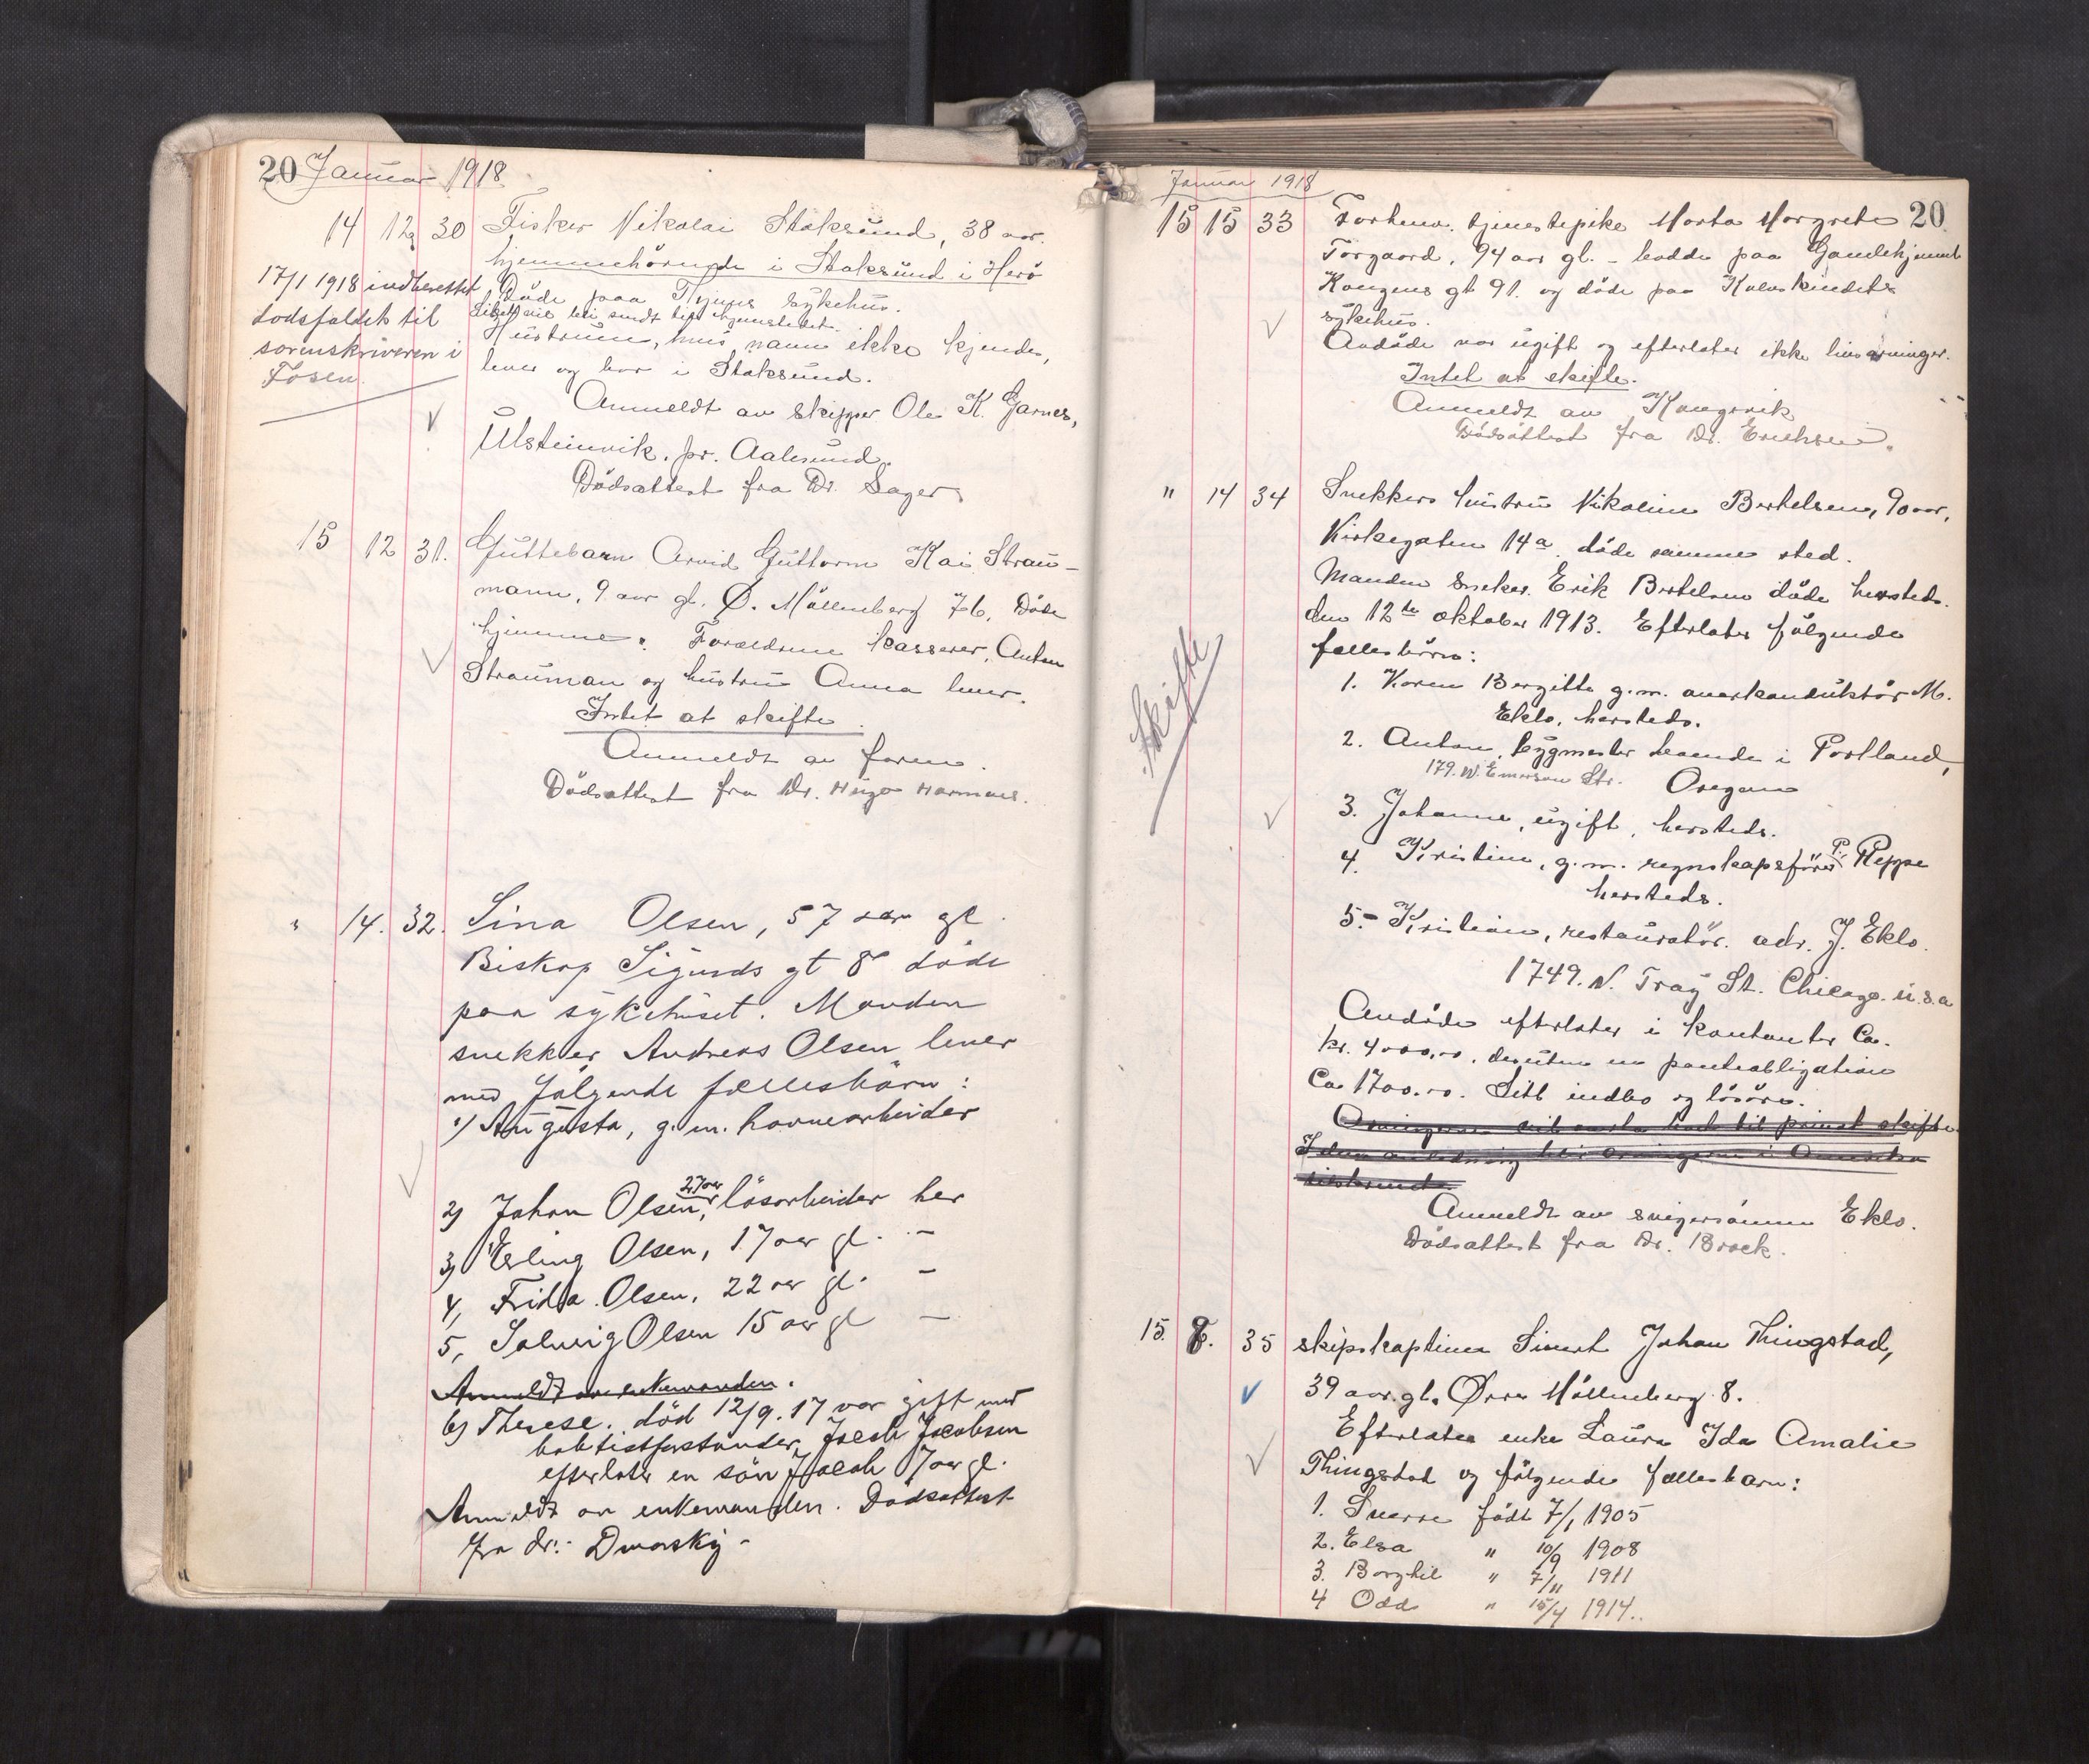 20 Januar 1918
14 12 30 Fisker Nikolai Stoksund, 38 aar.
hjemmehörende i Stoksund i Herö
Döde paa Thjems sykehus.
Liket vil bli sendt til hjemstedet.
Hustruen, hvis navn ikke kjendes,
lever og bor i Stoksund.
17/1 1918 indberettet
dodsfaldet til
sorenskriveren i
Fosen.
Anmeldt av skipper Ole K. Garnes,
Ulsteinvik. pr. Aalesund.
Dödsattest fra Dr. Sager
15 12 31. Guttebarn Arvid Guttorm Kai Strau-
mann, 9 aar gl. Ø. Möllenberg 76. Döde
hjemme. Forældrene kasserer Anton
Strauman og hustru Anna lever.
Intet at skifte.
Anmeldt av faren.
Dödsattest fra Dr. Hugo Harmens.
" 14. 32. Sina Olsen, 57 aar gl
Biskop Sigurds gt 8 döde
paa sykehuset. Manden
snekker Andreas Olsen lever
med fölgende fællesbörn:
1) Augusta, g. m. havnearbeider
2) Johan Olsen, 27 aar lösarbeider her
3) Erling Olsen, 17 aar gl. -
4, Frida Olsen, 22 aar gl. -
5, Solveig Olsen 15 aar gl -
Anmeldt av enkemanden.
6) Therese. död 12/9.17 var gift med
babtistforstander Jacob Jacobsen
efterlater en sön Jacob 7 aar gl.
Anmeldt av enkemanden. Dödsattest
fra dr. Dworsky -
Januar 1918
20
15 15 33 Forhenv. tjenestepike Marta Margrete
Torgaard, 94 aar gl. - bodde paa Gamlehjemmet
Kongens gt 91. og döde paa Kalvskindets
sykehus.
Avdöde var ugift og efterlater ikke livsarvinger.
Intet at skifte.
Anmeldt av Kongsvik
Dödsattest fra Dr. Erichsen.
" 14 34 Snekkers hustru Nikoline Bertelsen, 90 aar,
Kirkegaten 14a. döde samme sted.
Manden sneker Erik Bertelsen döde hersteds.
den 12te oktober 1913. Efterlater fölgende
fællesbörn:
Skifte
1. Karen Bergitte g.m. overkonduktör M.
Eklo, hersteds.
2. Anton, bygmester boende i Portland,
179. N. Emerson Str. Oregon
3. Johanne, ugift, hersteds.
4. Kristine, g.m. regnskapsförer P. Reppe
hersteds.
5. Kristian, restauratör. adr. J. Eklo.
1749. N. Troy St. Chicago. u.s.a
Avdöde efterlater i kontanter Ca.
kr. 4000,00. desuten en panteobligation
Ca 1700.00. Litt indbo og lösöre.
Arvingerne vil motta bud til privat skifte
I den anledning blir arvingerne i Amerika
tilskrevet.
Anmeldt av svigersönnen Eklo.
Dödsattest fra Dr. Brock.
15. 8. 35 skipskaptein Sivert Johan Thingstad,
39 aar. gl. Øvre Möllenberg 8.
Efterlater enke Laura Ida Amalie
Thingstad og fölgende fællesbarn:
1. Sverre födt 7/1 1905
2. Elsa " 10/9 1908
3. Borghil " 7/11 1911
4 Odd " 15/4 1914..